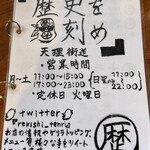 歴史を刻め
天理街道
・営業時間
月〜土 11:00〜15:00
17:00〜23:00
日曜 11:00 22:00
・定休日 火曜日
twitter
@rekishi_tenri
お店の情報やゲリラトッピング、
メニュー等様々な事をツイート
歴